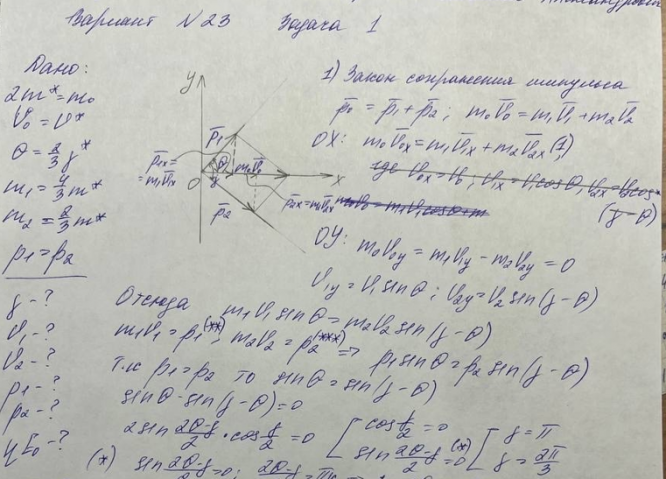 Вариант N23 Задача 1
Дано:
2m* = m₀
V₀ = V*
θ = 2/3 γ*
m₁ = 4/3 m*
m₂ = 2/3 m*
p₁ = p₂
γ - ?
V₁ - ?
V₂ - ?
p₁ - ?
p₂ - ?
y
p̄₁
p̄₁ₓ =
= m₁V̄₁ₓ
m₀V̄₀
θ
γ
O
x
p̄₂
p̄₂ₓ = m₂V̄₂ₓ
1) Закон сохранения импульса
p̄₀ = p̄₁ + p̄₂ ; m₀V̄₀ = m₁V̄₁ + m₂V̄₂
OX: m₀V̄₀ₓ = m₁V̄₁ₓ + m₂V̄₂ₓ (1)
где V₀ₓ = V₀, V₁ₓ = V₁cosθ, V₂ₓ = V₂cos
(γ - θ)
OY: m₀V₀y = m₁V₁y - m₂V₂y = 0
V₁y = V₁ sinθ ; V₂y = V₂ sin(γ - θ)
Отсюда m₁V₁ sinθ = m₂V₂ sin(γ - θ)
m₁V₁ = p₁(**) ; m₂V₂ = p₂(***) => p₁ sinθ = p₂ sin(γ - θ)
Т.к p₁ = p₂ то sinθ = sin(γ - θ)
sinθ - sin(γ - θ) = 0
2 sin (2θ-γ)/2 · cos γ/2 = 0 [ cos γ/2 = 0 [ γ = π
sin (2θ-γ)/2 = 0 (*) γ = 2π/3
(*) sin (2θ-γ)/2 = 0;